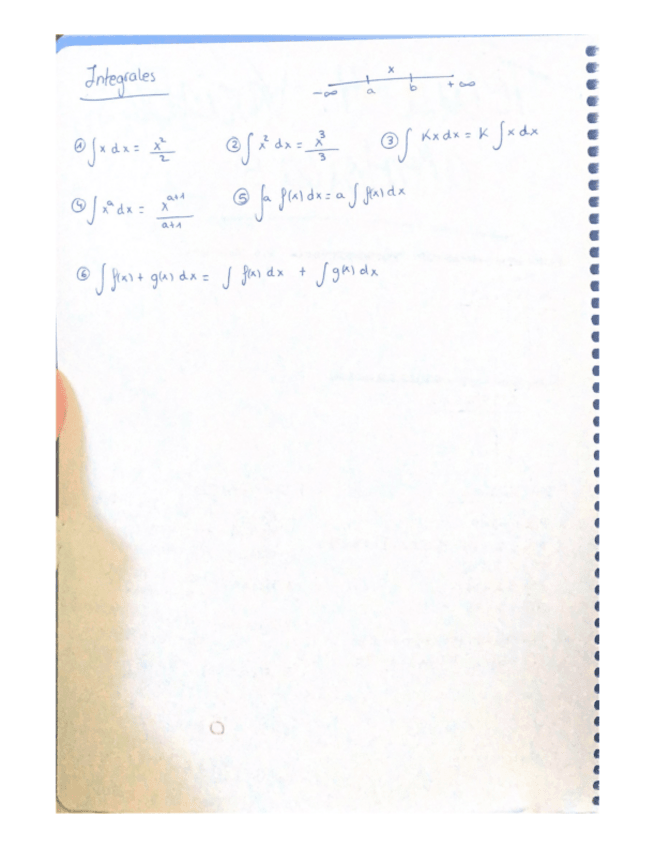 Integrales
x
-∞ a b +∞
① ∫ x dx = x²/2 ② ∫ x² dx = x³/3 ③ ∫ Kx dx = K ∫ x dx
④ ∫ xᵃ dx = xᵃ⁺¹/a+1 ⑤ ∫ a f(x) dx = a ∫ f(x) dx
⑥ ∫ f(x) + g(x) dx = ∫ f(x) dx + ∫ g(x) dx